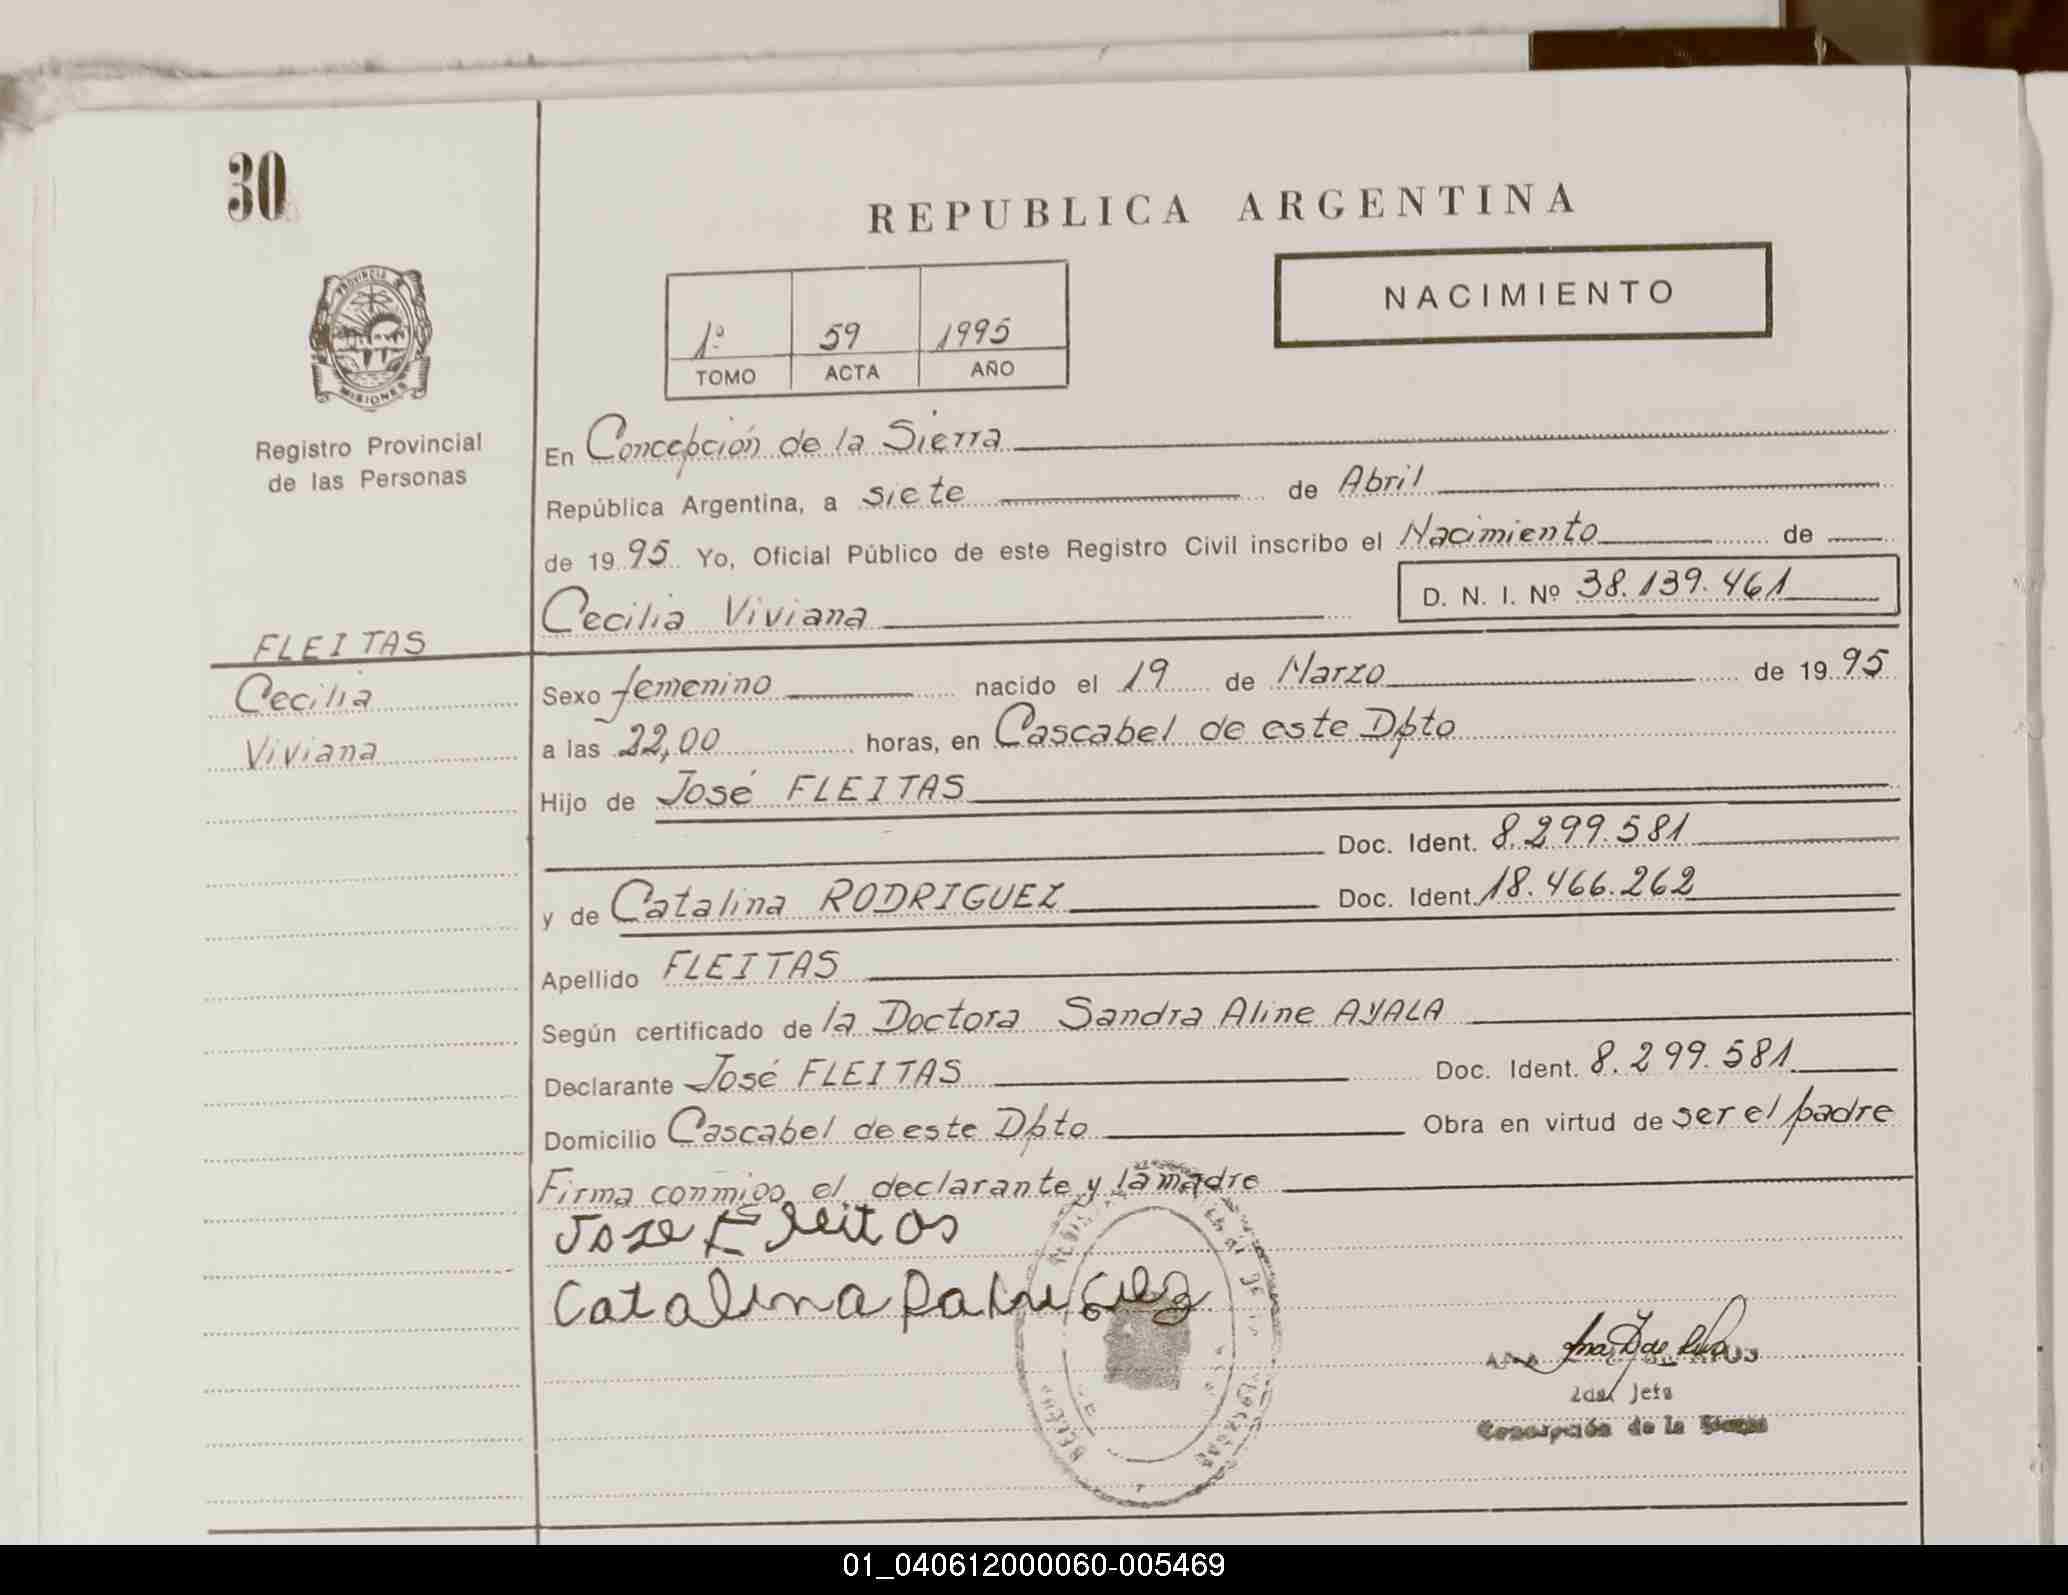 30
REPUBLICA ARGENTINA
PROVINCIA
MISIONES
NACIMIENTO
1º 59 1995
TOMO ACTA AÑO
Registro Provincial
de las Personas
En Concepción de la Sierra
República Argentina, a siete de Abril
de 19 95 Yo, Oficial Público de este Registro Civil inscribo el Nacimiento de
Cecilia Viviana D. N. I. Nº 38.139.461
FLEITAS
Cecilia
Viviana
Sexo femenino nacido el 19 de Marzo de 19 95
a las 22,00 horas, en Cascabel de este Dpto
Hijo de José FLEITAS
Doc. Ident. 8.299.581
y de Catalina RODRIGUEZ Doc. Ident. 18.466.262
Apellido FLEITAS
Según certificado de la Doctora Sandra Aline AYALA
Declarante José FLEITAS Doc. Ident. 8.299.581
Domicilio Cascabel de este Dpto Obra en virtud de ser el padre
Firma conmigo el declarante y la madre
Jose Fleitas
Catalina
2da Jefa
Concepción de la Sierra
01_040612000060-005469